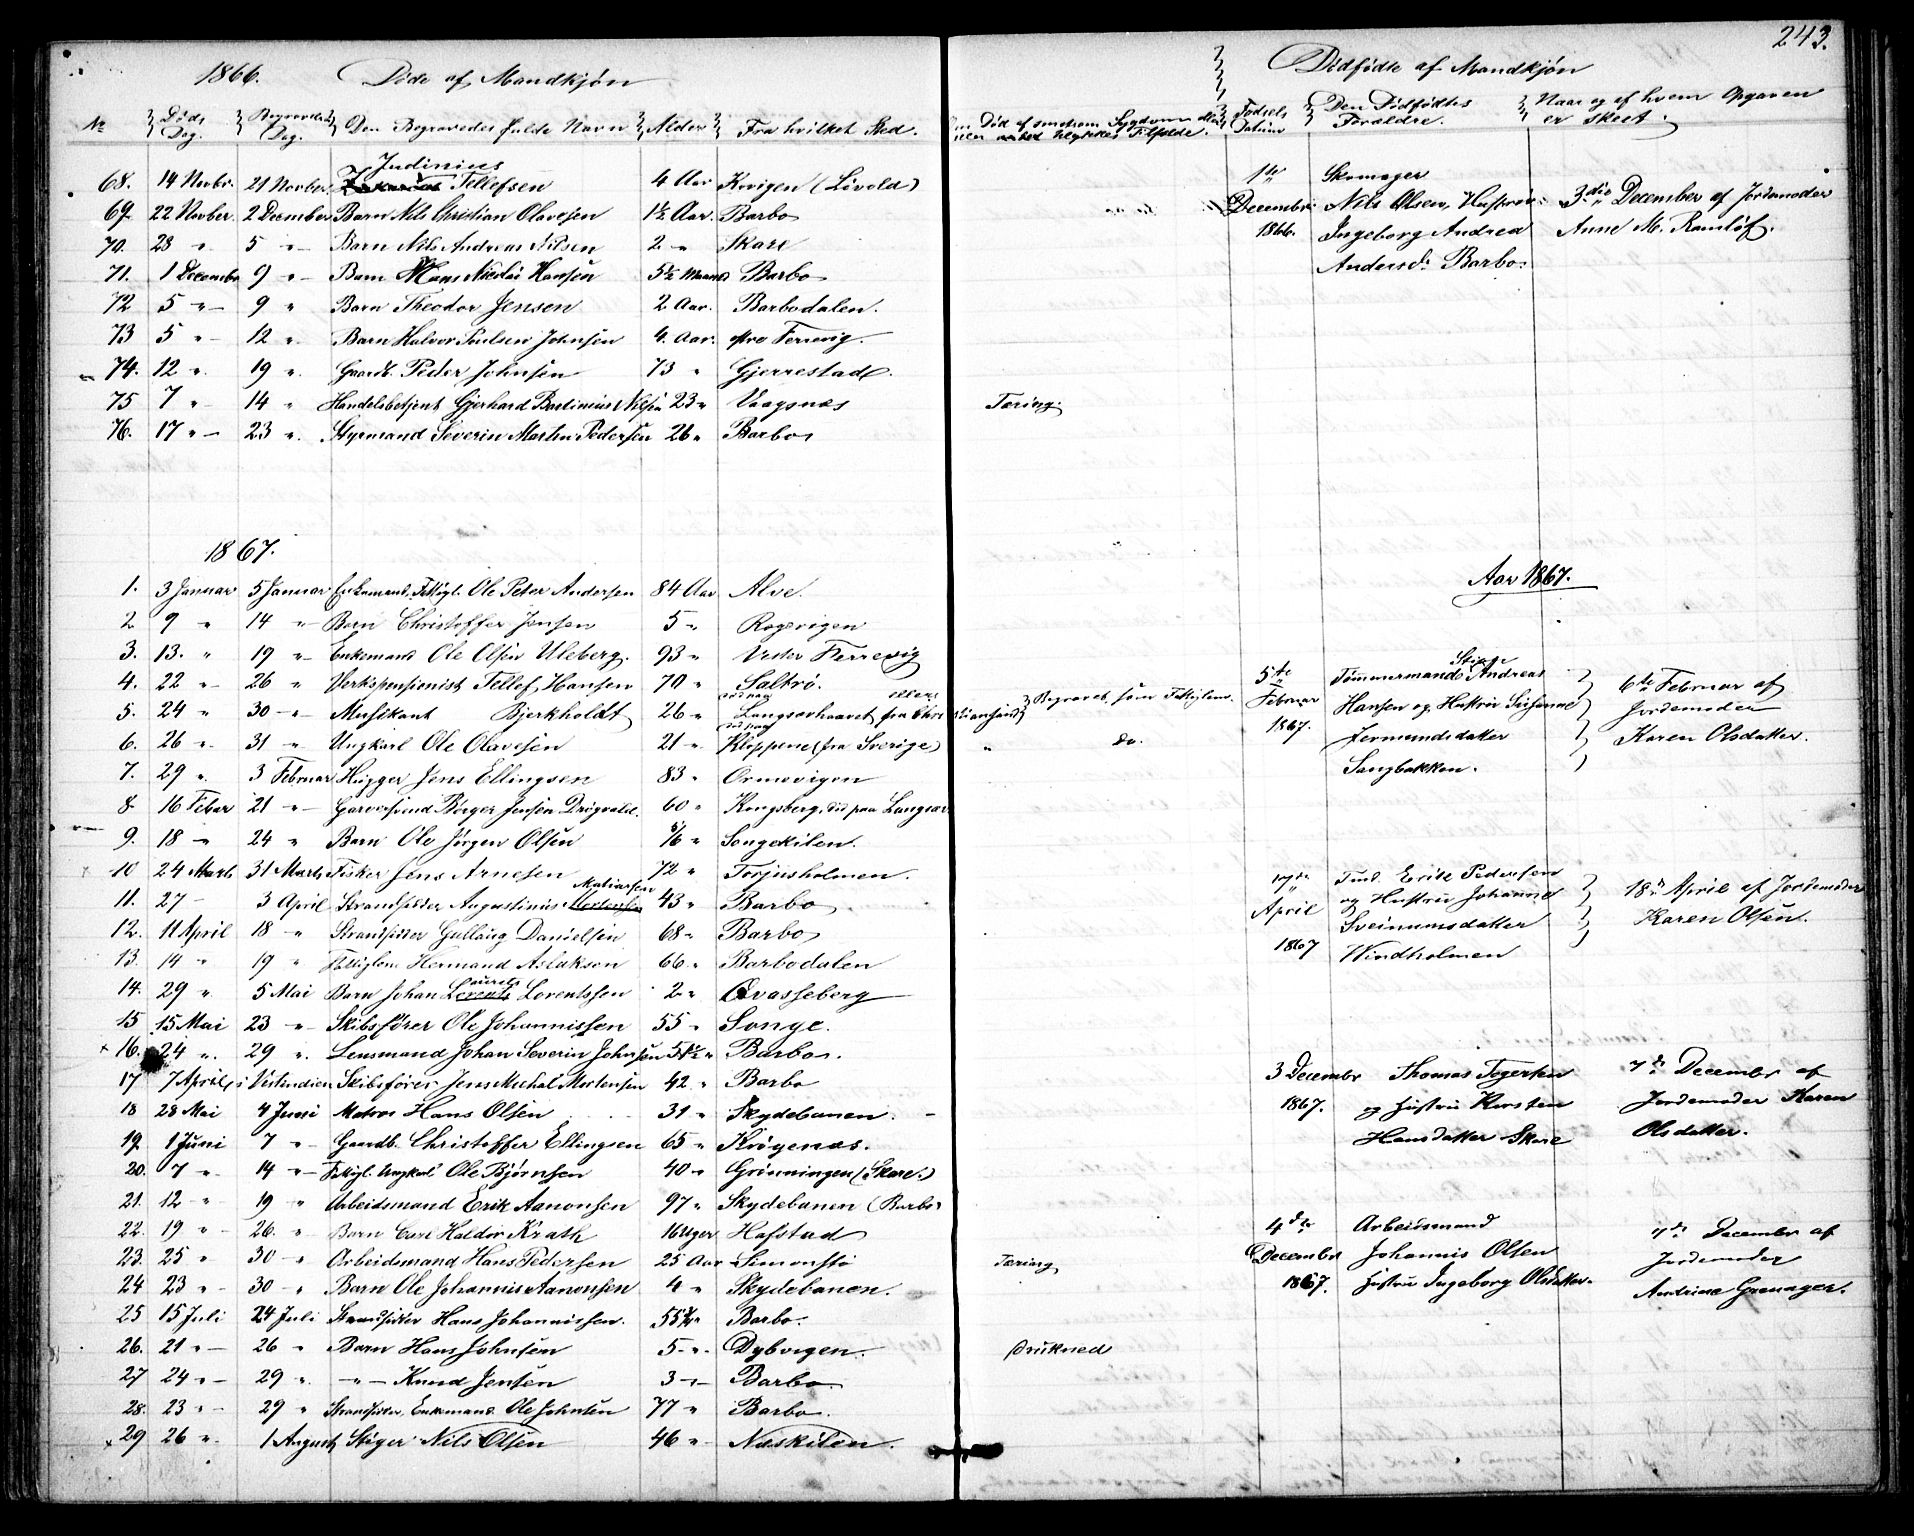 243.
1866. Døde af Mandkjøn
No Døds Dag. Begravelses Dag. Den Begravedes fulde Navn Alder Fra hvilket Sted.
Judinius
68. 14 Novbr. 21 Novber. Tellefsen 4 Aar Krogen (Livold)
69. 22 Novber 2 December Barn Nils Christian Olavesen 1½ Aar. Barbo
70. 23 " 5 " Barn Nils Andreas Nilsen 2 " Skare
71. 1 Decembr 9 " Barn Hans Nicolai Hansen 5½ Maaned Barbo
72 5 " 9 " Barn Theodor Jensen 2 Aar. Barbodalen.
73 5 " 12 " Barn Halvor Poulsen Johnsen 4. Aar. Ferrevig.
74. 12 " 19 " Gaardb. Peder Johnsen 73 " Gjerrestad.
75 7 " 14 " Handelsbetjent Gjerhard Bertinius Nilsen 23 " Vaagsnæs
76. 17 " 23 " Styrmand Severin Martin Pedersen 26 " Barbo
1867.
1. 3 Januar 5 Januar Enkemand. Fattigl. Ole Peter Andersen 84 Aar Alve.
2 9 " 14 " Barn Christoffer Jensen 5 " Rogevigen
3. 13. " 19 " Enkemand Ole Olsen Uleberg. 93 " Vester Ferrevig
4. 22 " 26 " Verkspensionist Tellef Hansen 70 " Saltrø.
5. 24 " 30 " Musikant Bjerkholdt 26 " Langsævhaavet fra Christiansund
6. 26 " 31 " Ungkarl Ole Olavesen 21 " Kloppene (fra Sverige)
7. 29 " 3 Februar Hugger Jens Ellingsen 83 " Ormevigen
8. 16 Febar 21 " Garversvend Børger Jensen Drogvald. 60 " Kongsberg, død paa Langsæv
9. 18 " 24 " Barn Ole Jørgen Olsen Songekilen.
10 24 Marts 31 Marts Fisker Jens Arnesen 72 " Torjusholmen.
Matiassen
11. 27 3 April Strandsidder Augustinius Mortensen 43 " Barbo
12. 11 April 18 " Strandsidder Gullaug Danielsen 68 " Barbo
13. 14 " 19 " Fattiglem Hermand Aslakson 66 " Barbodalen
aurits
14. 29 " 5 Mai Barn Johan Lorents Lorentssen 2 " Qvasseberg
15 15 Mai 23 " Skibsfører Ole Johannissen 55 " Songe.
16. 24 " 29 " Lensmand Johan Severin Johnsen 54½ " Barbo.
17 7 April i Vestindien Skibsfører Jens Michal Mortensen 42 " Barbo
18 28 Mai 4 Juni Matros Hans Olsen 31 " Skydebanen.
19. 1 Juni 7 " Gaardb. Christoffer Ellingsen 65 " Krøgenæs.
20. 7 " 14 " Fattigl. Ungkarl Ole Bjørnsen 40 " Grønningen (Skare.)
21. 12 " 19 " Arbeidsmand Erik Aanonsen 97 " Skydebanen (Barbo)
22. 19 " 26 " Barn Carl Haldor Krath 16 Uger Hafstad
23. 25 " 30 " Arbeidsmand Hans Pedersen 25 Aar Simonstø
24 23 " 30 " Barn Ole Johannis Aanonsen 4 " Skydebanen.
25 15 Juli 24 Juli Strandsidder Hans Johannissen. 55¾ " Barbo.
26. 21 " 26 " Barn Hans Johnsen 5 " Dybvigen.
27 24 " 29 " " Knud Jensen 3 " Barbo.
28. 23 " 29 " Strandsidder, Enkemand. Ole Johnsen 77 " Barbo.
29 26 " 1 August Stiger Nils Olsen 46 " Næskilen.
Død af smitsom Sygdom eller ved Ulykkes Tilfælde.
Tæring.
Begravet som Fattiglem.
" do.
Tæring
drukned
Dødfødte af Mandkjøn
Fødsels Datum Den Dødfødtes Forældre. Naar og af hvem Opgaven er skeet.
1te December 1866.
Skomager
Nils Olsen, Hustru
Ingeborg Andrea
Andersd. Barbo.
3die December af Jordemoder
Anne M. Ramløf.
Aar 1867.
5te Februar 1867.
Tømmermand Andreas
Hansen og Hustru Susanne
Jermundsdatter
Sangbakken.
6te Februar af
Jordemoder
Karen Olsdatter.
17de April 1867
Erik Pedersen
og Hustru Johanne
Sveinumsdatter
Windholmen
18de April af Jordemoder
Karen Olsen.
3 Decembr 1867.
Thomas Togersen
og Hustru Kirsten
Hansdatter Skare
7de Decembr af
Jordemoder Karen
Olsdatter.
4de Decembr 1867.
Arbeidsmand
Johannis Olsen
Hustru Ingeborg Olsdatter.
7de Decembr af
Jordemoder
Andrine Grenager.